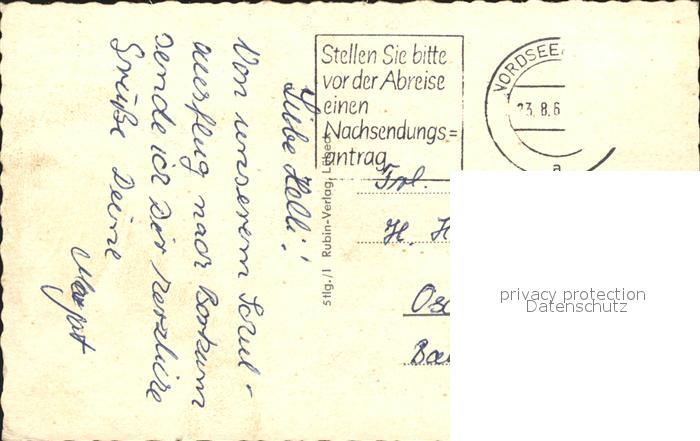 Liebe Holli!
Von unserem Schul-
ausflug nach Borkum
sende ich Dir herzliche
Grüße Deine
Margot
Stellen Sie bitte
vor der Abreise
einen
Nachsendungs=
antrag
NORDSEE
23.8.6
a
Stlg./1 Rubin-Verlag, Lübeck
Frl.
H. H
privacy protection
Datenschutz